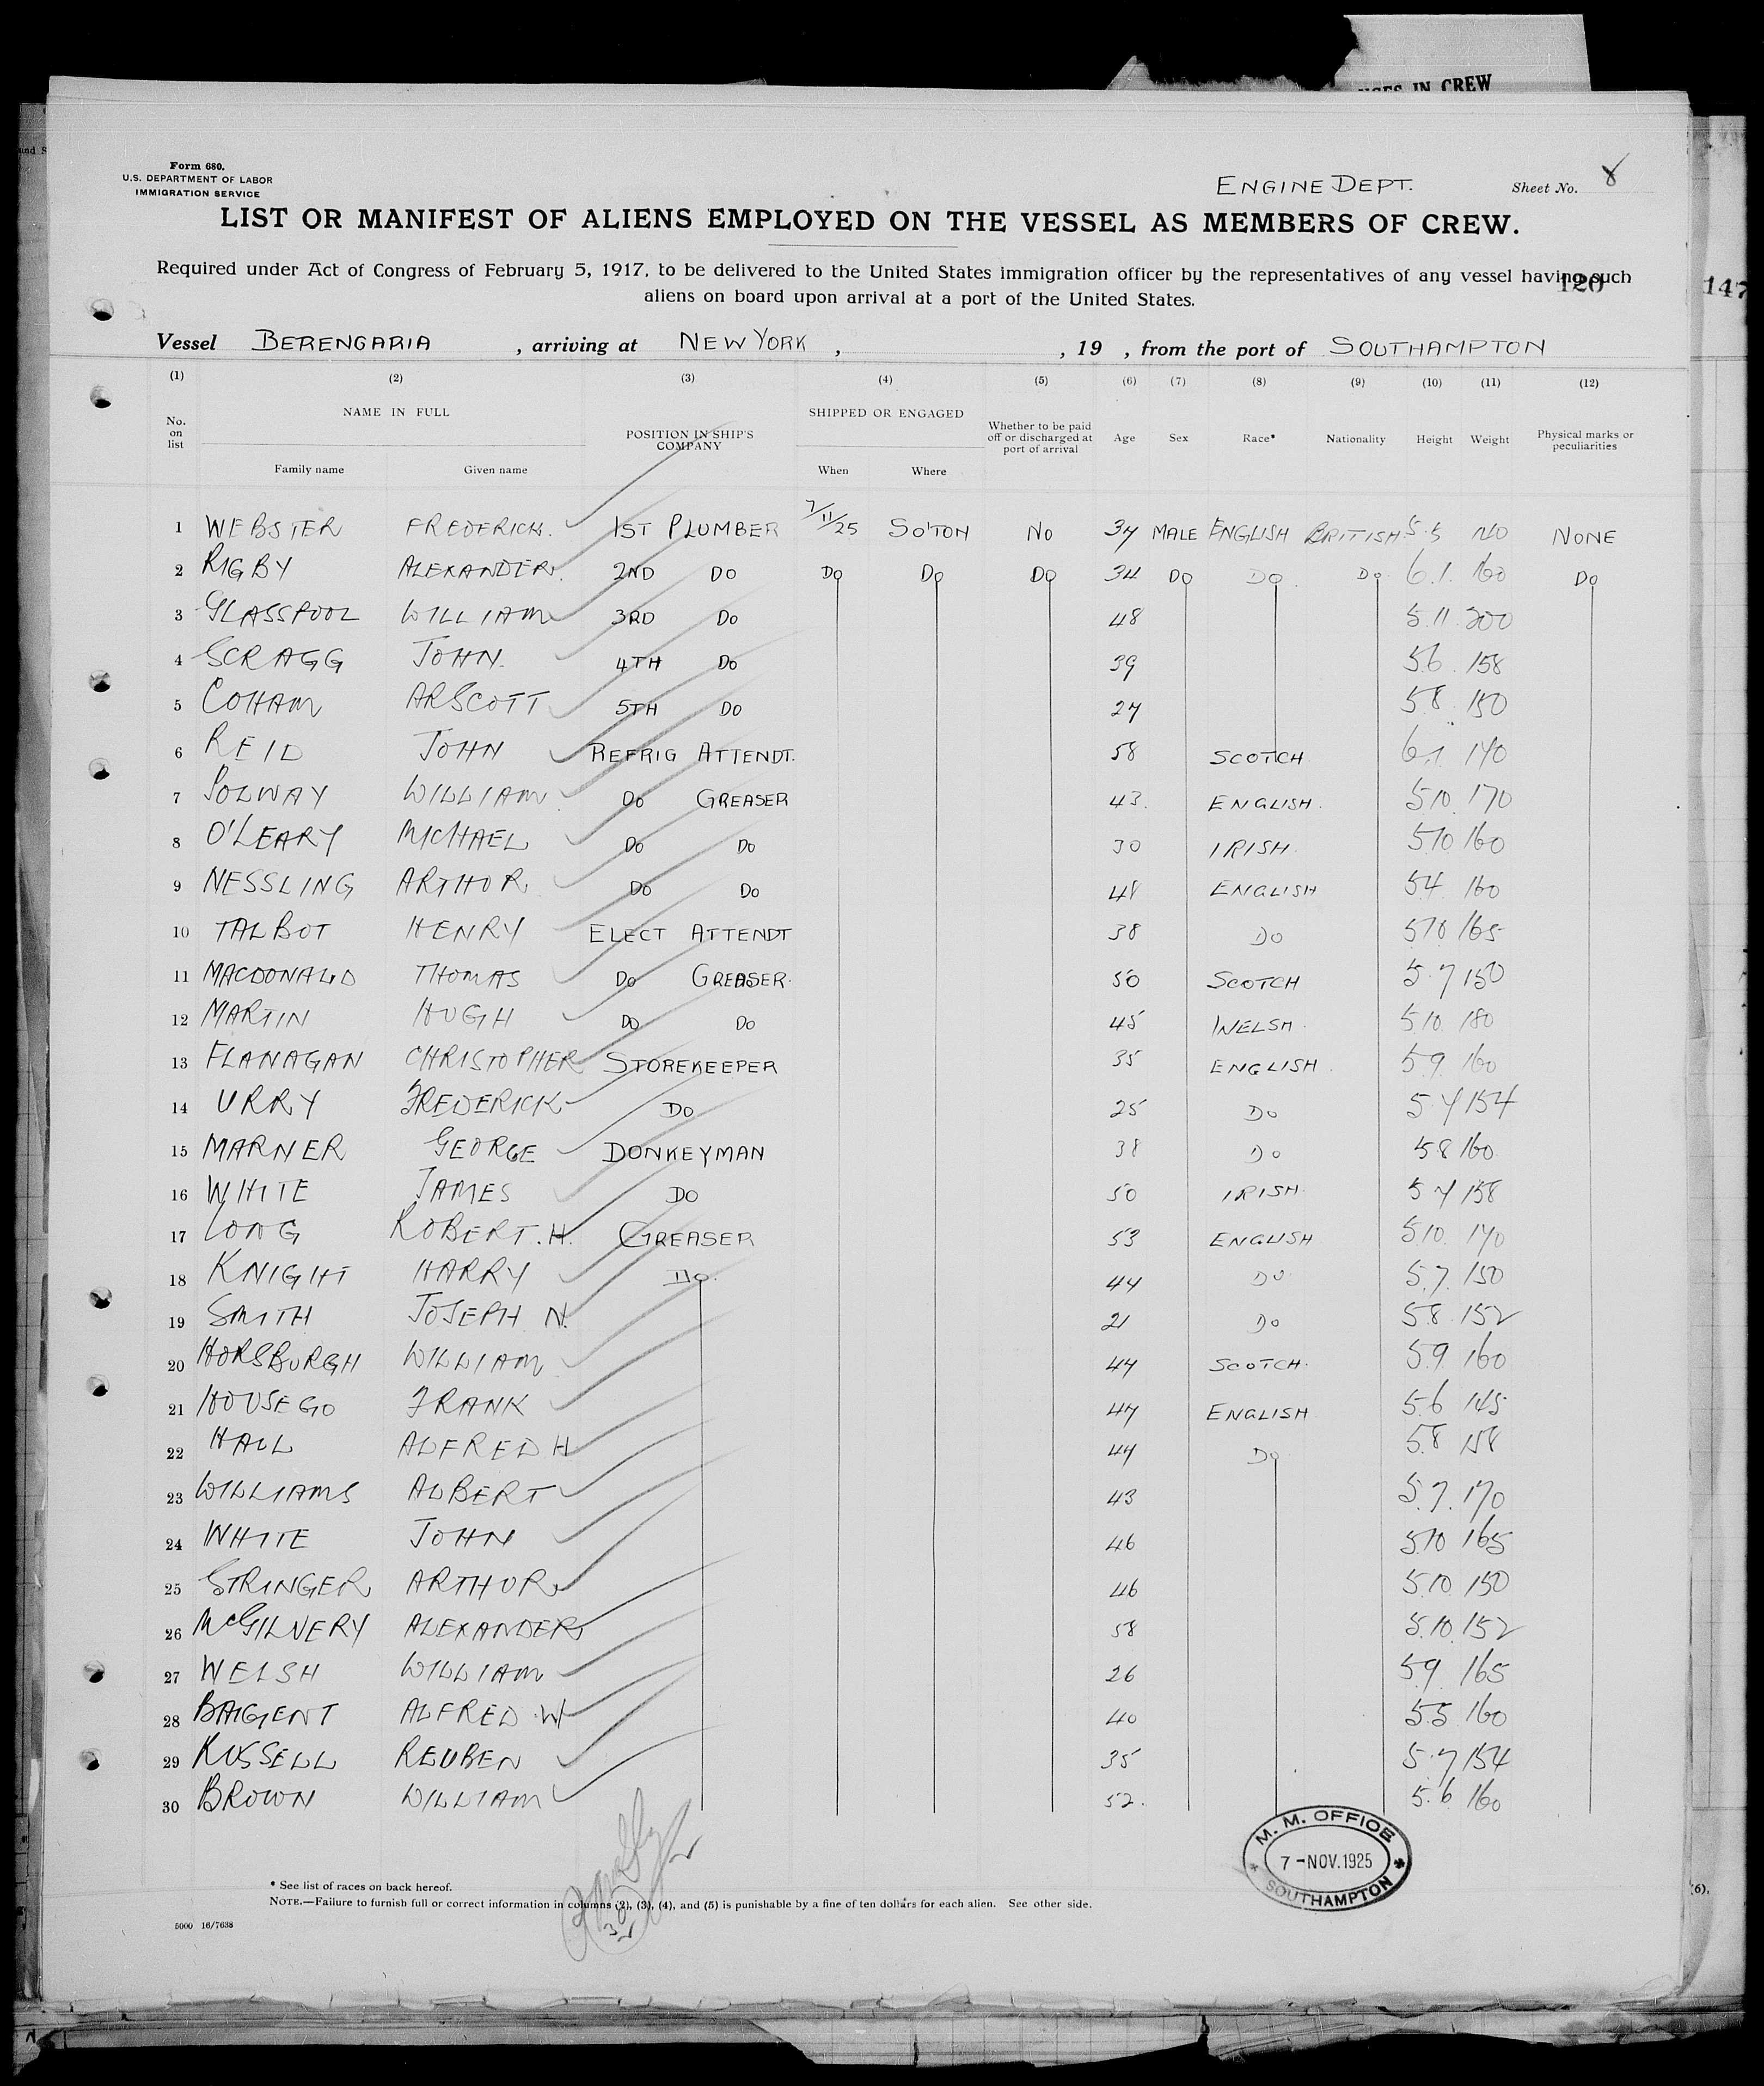 NGES IN CREW
and S
Form 680.
U.S. DEPARTMENT OF LABOR
IMMIGRATION SERVICE
ENGINE DEPT. Sheet No. 8
LIST OR MANIFEST OF ALIENS EMPLOYED ON THE VESSEL AS MEMBERS OF CREW.
Required under Act of Congress of February 5, 1917, to be delivered to the United States immigration officer by the representatives of any vessel having such
aliens on board upon arrival at a port of the United States.
120
147
Vessel BERENGARIA , arriving at NEW YORK , , 19 , from the port of SOUTHAMPTON
(1) (2) (3) (4) (5) (6) (7) (8) (9) (10) (11) (12)
No. on list NAME IN FULL Family name Given name POSITION IN SHIP'S COMPANY SHIPPED OR ENGAGED When Where Whether to be paid off or discharged at port of arrival Age Sex Race* Nationality Height Weight Physical marks or peculiarities
1 WEBSTER FREDERICK. 1ST PLUMBER 7/11/25 SO'TON NO 34 MALE ENGLISH BRITISH 5.5 140 NONE
2 RIGBY ALEXANDER. 2ND DO DO DO DO 34 DO DO. DO. 6.1. 160 DO
3 GLASSPOOL WILLIAM 3RD DO 48 5.11. 200
4 SCRAGG JOHN. 4TH DO 39 5.6. 158
5 COHAM ARSCOTT 5TH DO 24 5.8. 150
6 REID JOHN REFRIG ATTENDT. 58 SCOTCH. 6.1. 140
7 SOLWAY WILLIAM DO GREASER 43. ENGLISH. 5.10. 170
8 O'LEARY MICHAEL DO DO 30 IRISH. 5.10 160
9 NESSLING ARTHUR DO DO 48 ENGLISH 5.4. 160
10 TALBOT HENRY ELECT ATTENDT 38 DO 5.10 165
11 MACDONALD THOMAS DO GREASER. 50 SCOTCH 5.7 150
12 MARTIN HUGH DO DO 45 WELSH. 5.10. 180
13 FLANAGAN CHRISTOPHER STOREKEEPER 35 ENGLISH. 5.9. 160
14 URRY FREDERICK DO 25 DO 5.4 154
15 MARNER GEORGE DONKEYMAN 38 DO 5.8 160
16 WHITE JAMES DO 50 IRISH. 5.4 158
17 LONG ROBERT. H. GREASER 53 ENGLISH 5.10. 140
18 KNIGHT HARRY DO. 44 DO 5.7. 150
19 SMITH JOSEPH N. 21 DO 5.8. 152
20 HORSBURGH WILLIAM 44 SCOTCH. 5.9. 160
21 HOUSEGO FRANK 44 ENGLISH 5.6 145
22 HALL ALFRED H 44 DO 5.8 158
23 WILLIAMS ALBERT 43 5.7. 170
24 WHITE JOHN 46 5.10 165
25 STRINGER ARTHUR 46 5.10. 150
26 McGILNERY ALEXANDER 58 5.10. 152
27 WELSH WILLIAM 26 5.9. 165
28 BAIGENT ALFRED W 40 5.5 160
29 RUSSELL REUBEN 35 5.7 154
30 BROWN WILLIAM 52. 5.6 160
M. M. OFFICE
7 - NOV. 1925
SOUTHAMPTON
* See list of races on back hereof.
NOTE.—Failure to furnish full or correct information in columns (2), (3), (4), and (5) is punishable by a fine of ten dollars for each alien. See other side.
5000 16/7638
30
(6),